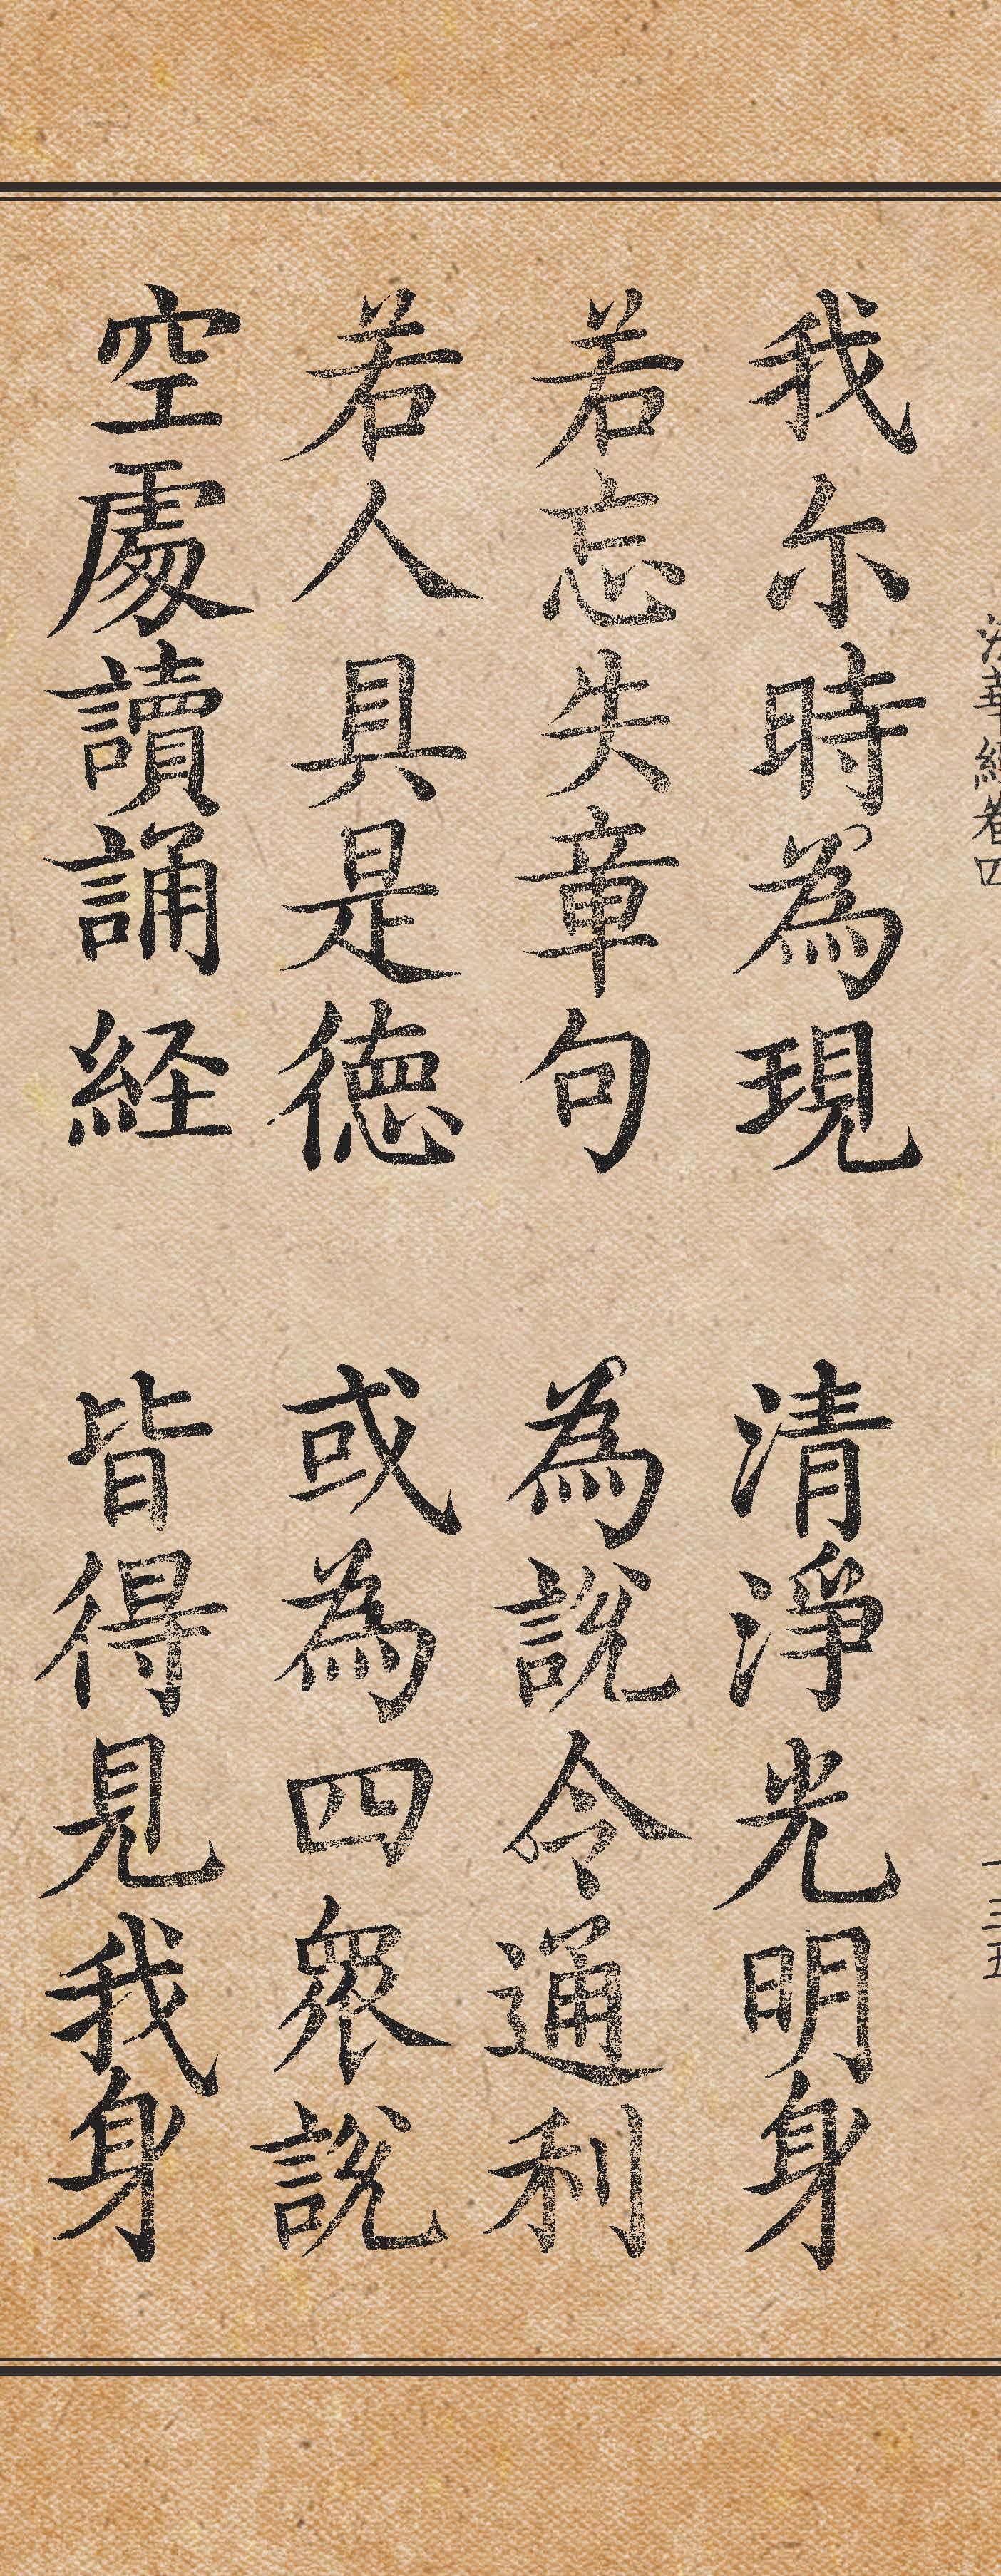 法華経卷四 一三五
我尓時為現 清淨光明身
若忘失章句 為說令通利
若人具是徳 或為四衆說
空處讀誦経 皆得見我身